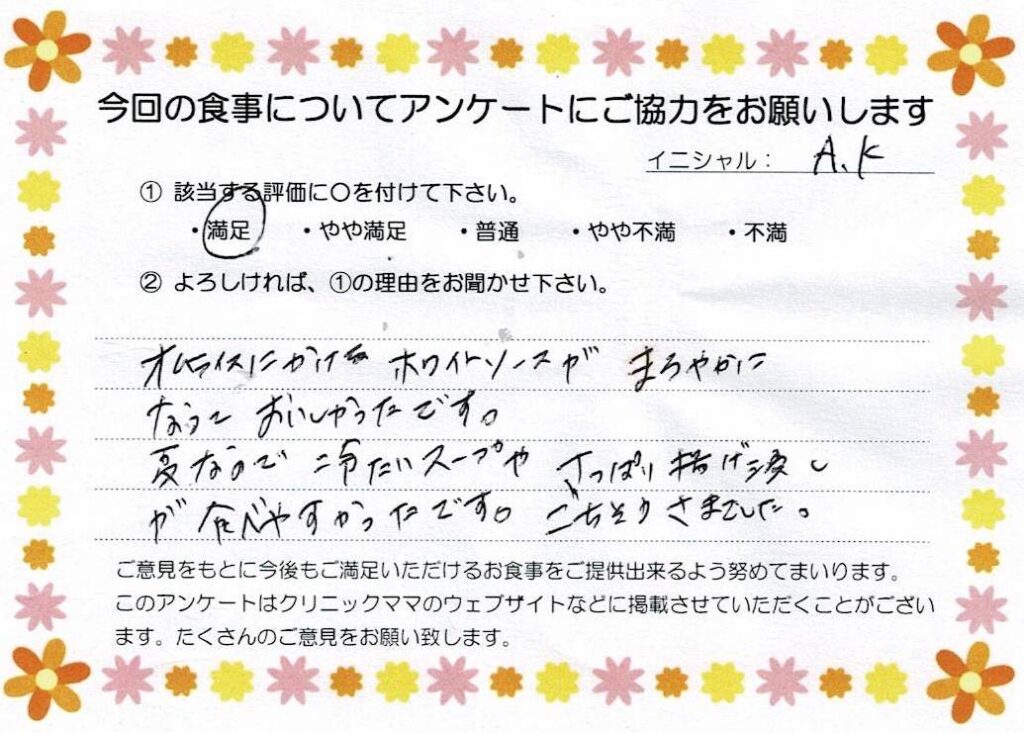 今回の食事についてアンケートにご協力をお願いします
イニシャル： A.K
① 該当する評価に〇を付けて下さい。
・満足 ・やや満足 ・普通 ・やや不満 ・不満
② よろしければ、①の理由をお聞かせ下さい。
オムライスにかける ホワイトソースが まろやかに
なって おいしかったです。
夏なので 冷たいスープや さっぱり揚げ浸し
が 食べやすかったです。ごちそうさまでした。
ご意見をもとに今後もご満足いただけるお食事をご提供出来るよう努めてまいります。
このアンケートはクリニックママのウェブサイトなどに掲載させていただくことがござい
ます。たくさんのご意見をお願い致します。